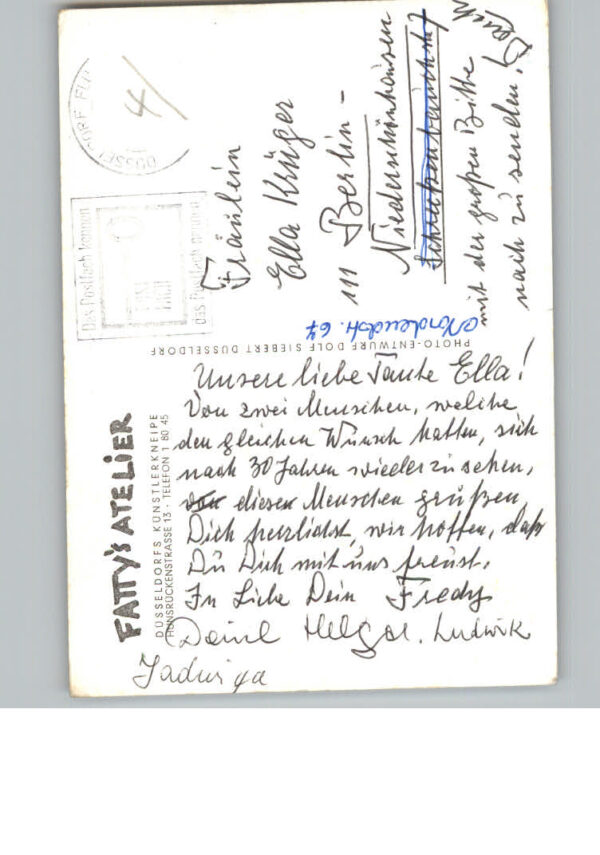 FATTY'S ATELIER
DÜSSELDORFS KÜNSTLERKNEIPE
HUNSRÜCKENSTRASSE 13 · TELEFON 1 80 45
Unsere liebe Tante Ella!
Von zwei Menschen, welche
den gleichen Wunsch hatten, sich
nach 30 Jahren wiederzusehen,
von diesen Menschen grüßen
Dich herzlichst, wir hoffen, daß
Du Dich mit uns freust.
In Liebe Dein Fredy
Helga. Ludwik
Jadwiga
PHOTO-ENTWURF DOLF SIEBERT DÜSSELDORF
4/
Das Postfach kennen
das Postfach nennen
Fräulein
Ella Krüger
111 Berlin-
Niederschönhausen
Nordendstr. 67
mit der großen Bitte
nach zu senden.